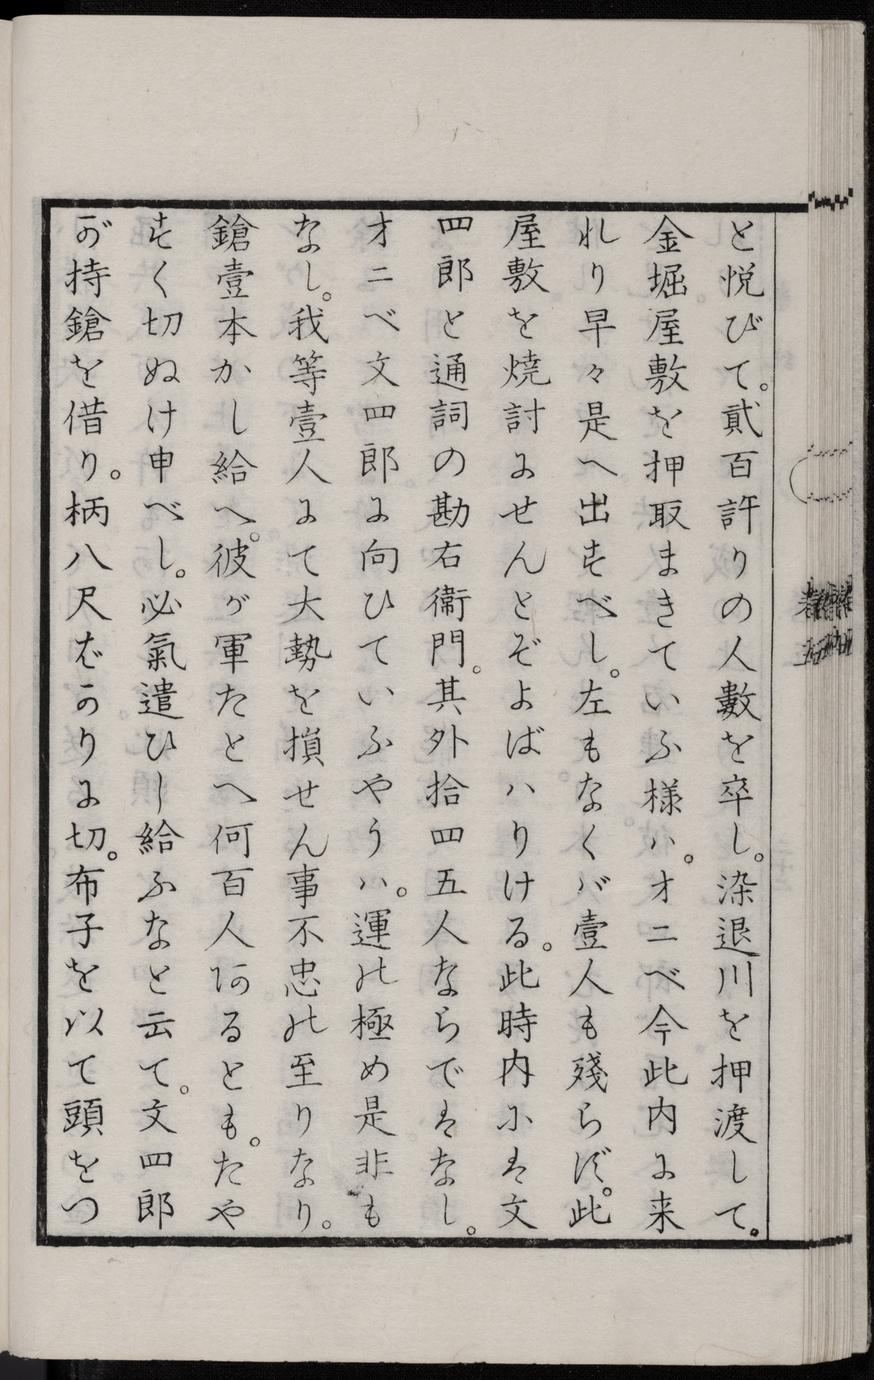 と悦びて。貳百許りの人數を卒し。染退川を押渡して。
金堀屋敷を押取まきていふ様ハ。オニベ今此内に来
れり早々是へ出すべし。左もなくバ壹人も殘らず。此
屋敷を焼討にせんとぞよばハりける。此時内にハ文
四郎と通詞の勘右衞門。其外拾四五人ならでハなし。
オニベ文四郎に向ひていふやうハ。運の極め是非も
なし。我等壹人にて大勢を損せん事不忠の至りなり。
鎗壹本かし給へ。彼が軍たとへ何百人あるとも。たや
すく切ぬけ申べし。必氣遣ひし給ふなと云て。文四郎
が持鎗を借り。柄八尺ばかりに切。布子を以て頭をつ